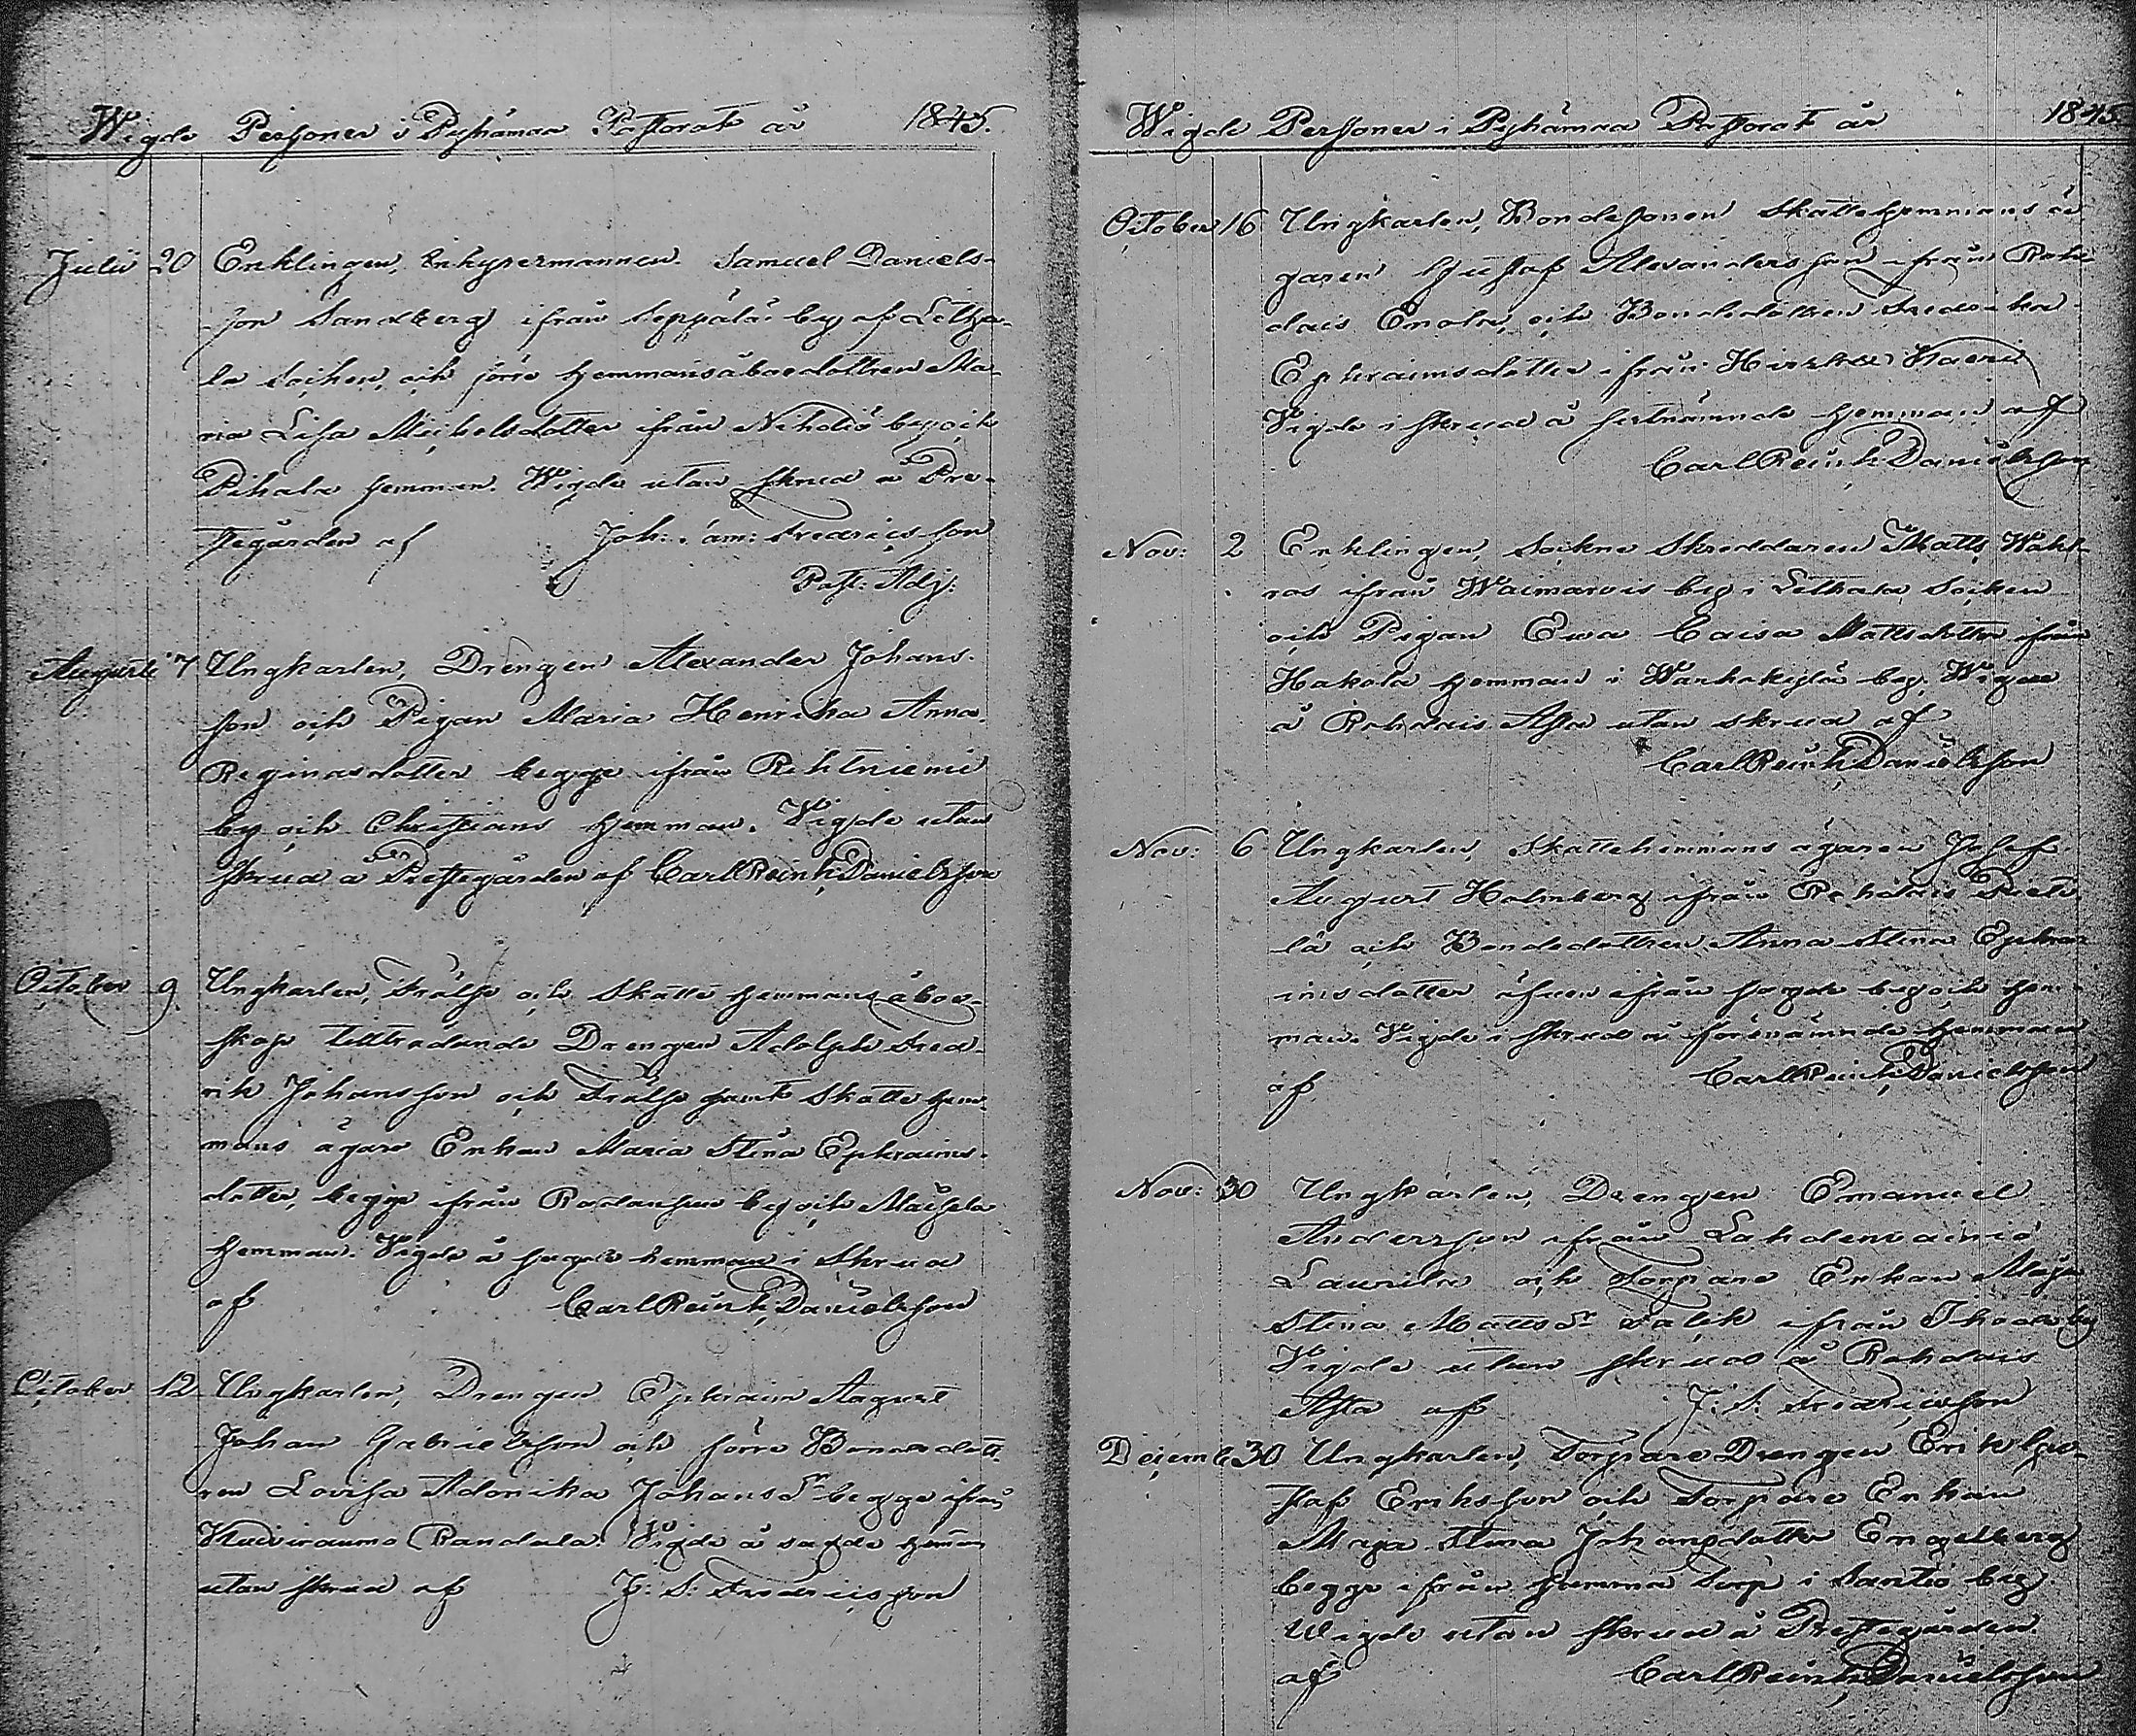 Wigde Personer i Pyhämaa Pastorat år 1845.
Julii 20 Enklingen, Inhysesmannen Samuel Daniels-
son Sandberg ifrån Seppälä by af Letha-
la Socken, och förre Hemmansåboedottren Ma-
ria Lisa Michelsdotter ifrån Nihdiö by och
Pihala hemman. Wigde utan skrud å Pre-
stegården af Joh: Sam: Fredricsson
Past. Adj.
Augusti 7 Ungkarlen, Drengen Alexander Johans-
son och Pigan Maria Henrika Anna
Reginasdotter begge ifrån Rihtniemi
by och Christians hemman. Vigde utan
skrud å Prestegården af Carl Reinh. Danielsson
October 9 Ungkarlen, Frälse och Skatte hemmans åboe-
skap tillträdande Drengen Adolph Fred-
rik Johansson och Frälse samt Skatte hem-
mans ägare Enkan Maria Stina Ephraims-
dotter, begge ifrån Rodansuu by och Maisela
hemman. Vigde å sagde hemman i Skrud
af Carl Reinh. Danielsson
October 12 Ungkarlen, Drengen Ephraim August
Johan Gabrielsson och förre Bondedott-
ren Lovisa Adorika Johansdr begge ifrån
Kuivirauma Randala. Vigde å sagde hemman
utan skrud af J: S: Fredricsson
Wigde Personer i Pyhämaa Pastorat år 1845
October 16 Ungkarlen, Bondesonen Skattehemmans ä-
garen Gustaf Alexandersson ifrån Roh-
dais Enola, och Bondedottren Fredrika
Ephraimsdotter ifrån Hirslax Kaeni
Vigde i skrud å sistnämnde hemman af
Carl Reinh. Danielsson
Nov: 2 Enklingen, Sockne Skreddaren Matts Wahl-
ros ifrån Waimarois by i Lethala Socken
och Pigan Ewa Caisa Mattsdotter ifrån
Hakola hemman i Warhokylä by. Wigde
å Rohdais Alsta utan skrud af
Carl Reinh. Danielsson
Nov: 6 Ungkarlen, Skattehemmans ägaren Josef
August Holmberg ifrån Rohdais Pieti-
lä och Bondedottren Anna Stina Ephra-
imsdotter äfven ifrån sagde by och hem-
man. Vigde i skrud å förenämnde hemman
af Carl Reinh. Danielsson
Nov: 30 Ungkarlen, Drengen Emanuel
Andersson ifrån Lahdenvainio
Laurila och Torpare Enkan Maja
Stina Mattsdr Falck ifrån Ihoda by
Vigde utan skrud å Rohdais
Alsta af J: S: Fredricsson
Decemb 30 Ungkarlen, Torpare Drengen Erik Gus-
taf Eriksson och Torpare Enkan
Maja Stina Johansdotter Engelberg
begge ifrån samma Torp i Santio by
Wigde utan skrud å Prestegården
af Carl Reinh. Danielsson